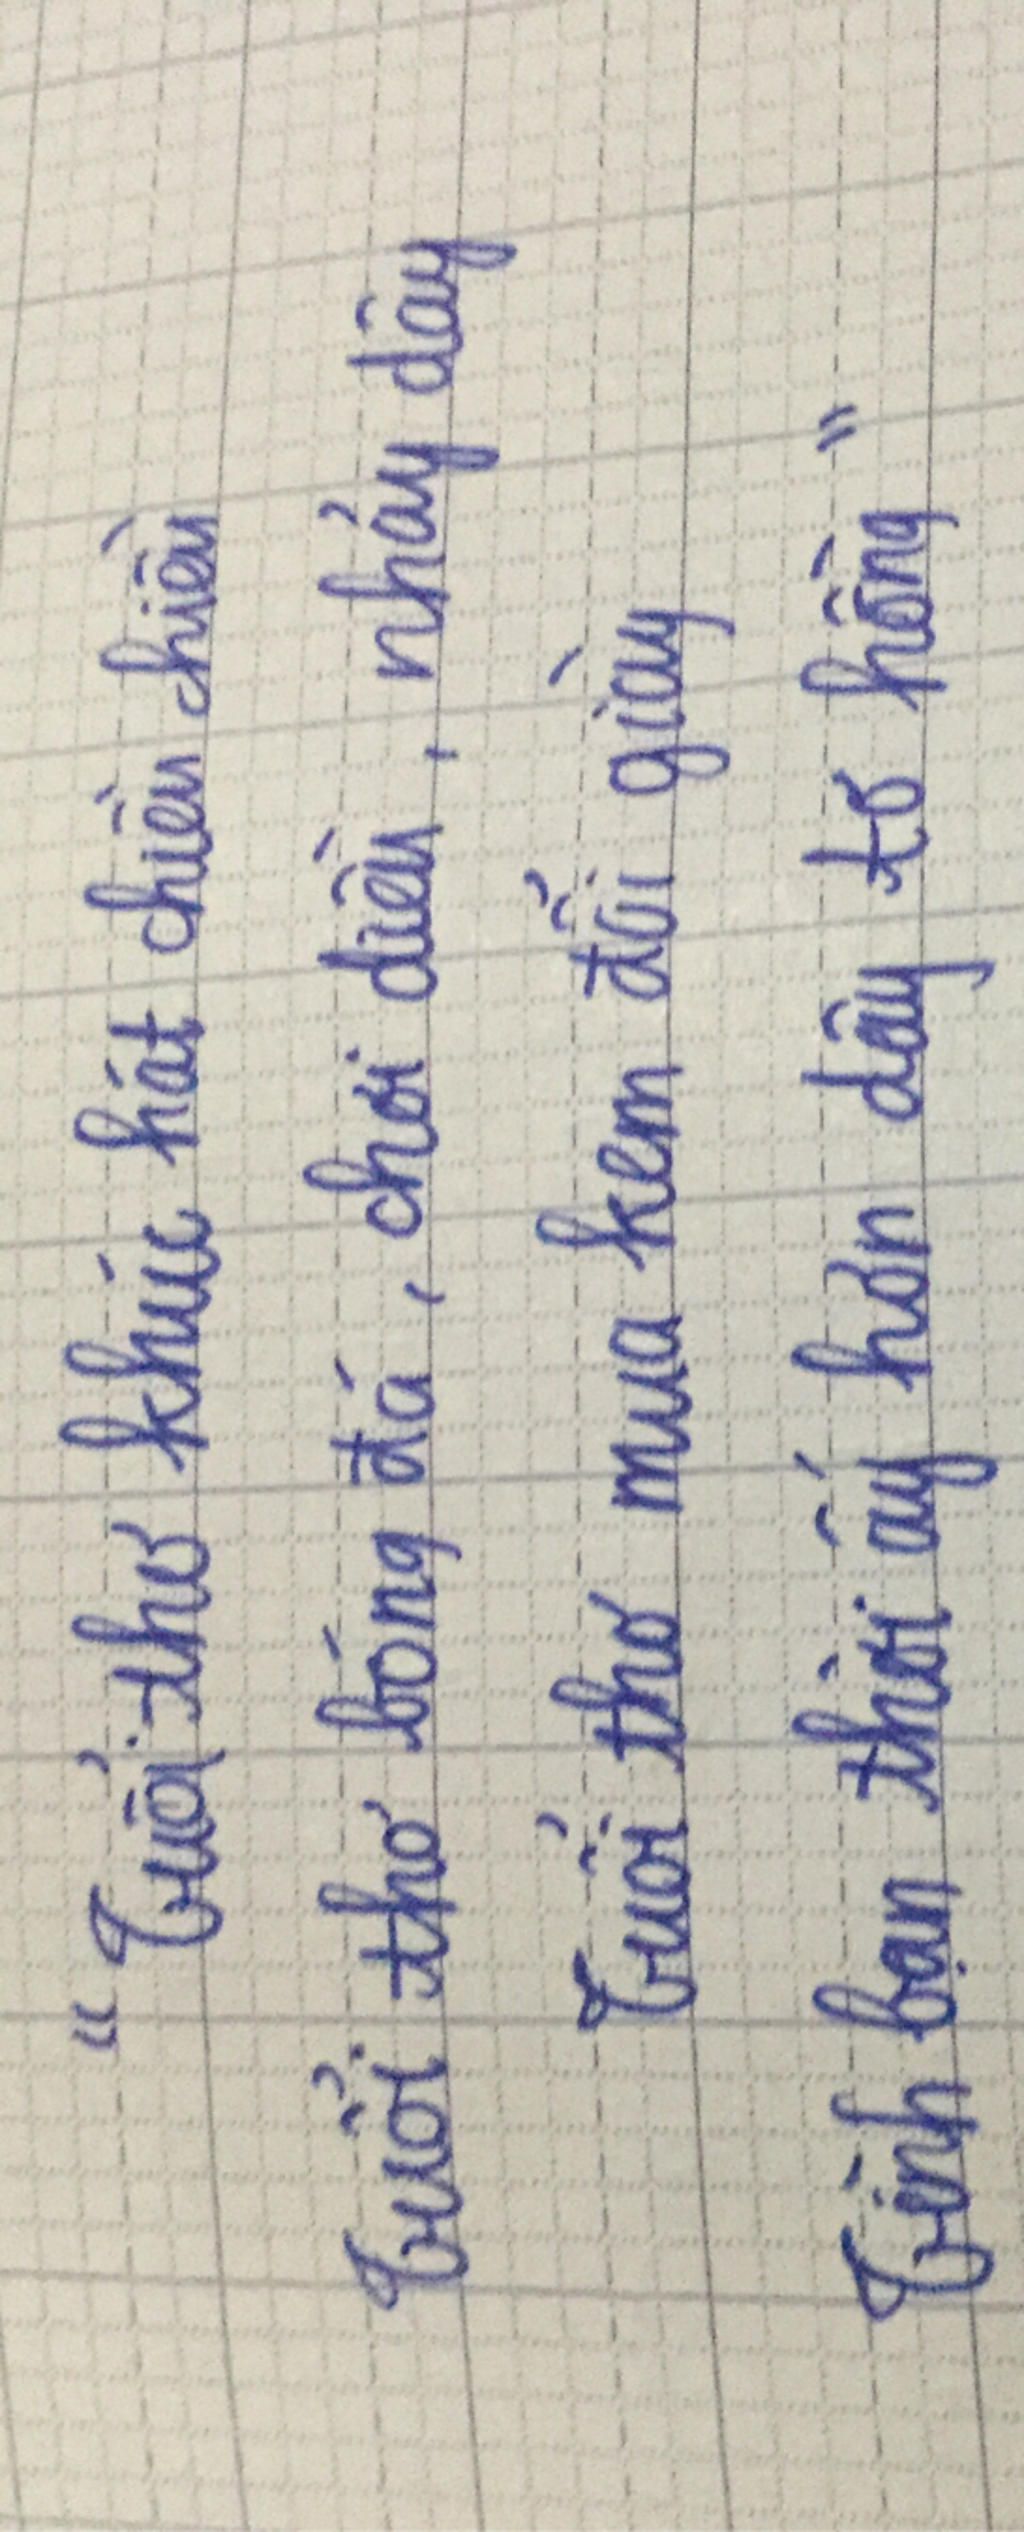 “ Tuổi thơ khúc hát chiều chiều
Tuổi thơ bóng đá, chơi diều, nhảy dây
Tuổi thơ mua kem đổi giày
Tình bạn thời ấy hơn dây tơ hồng ”